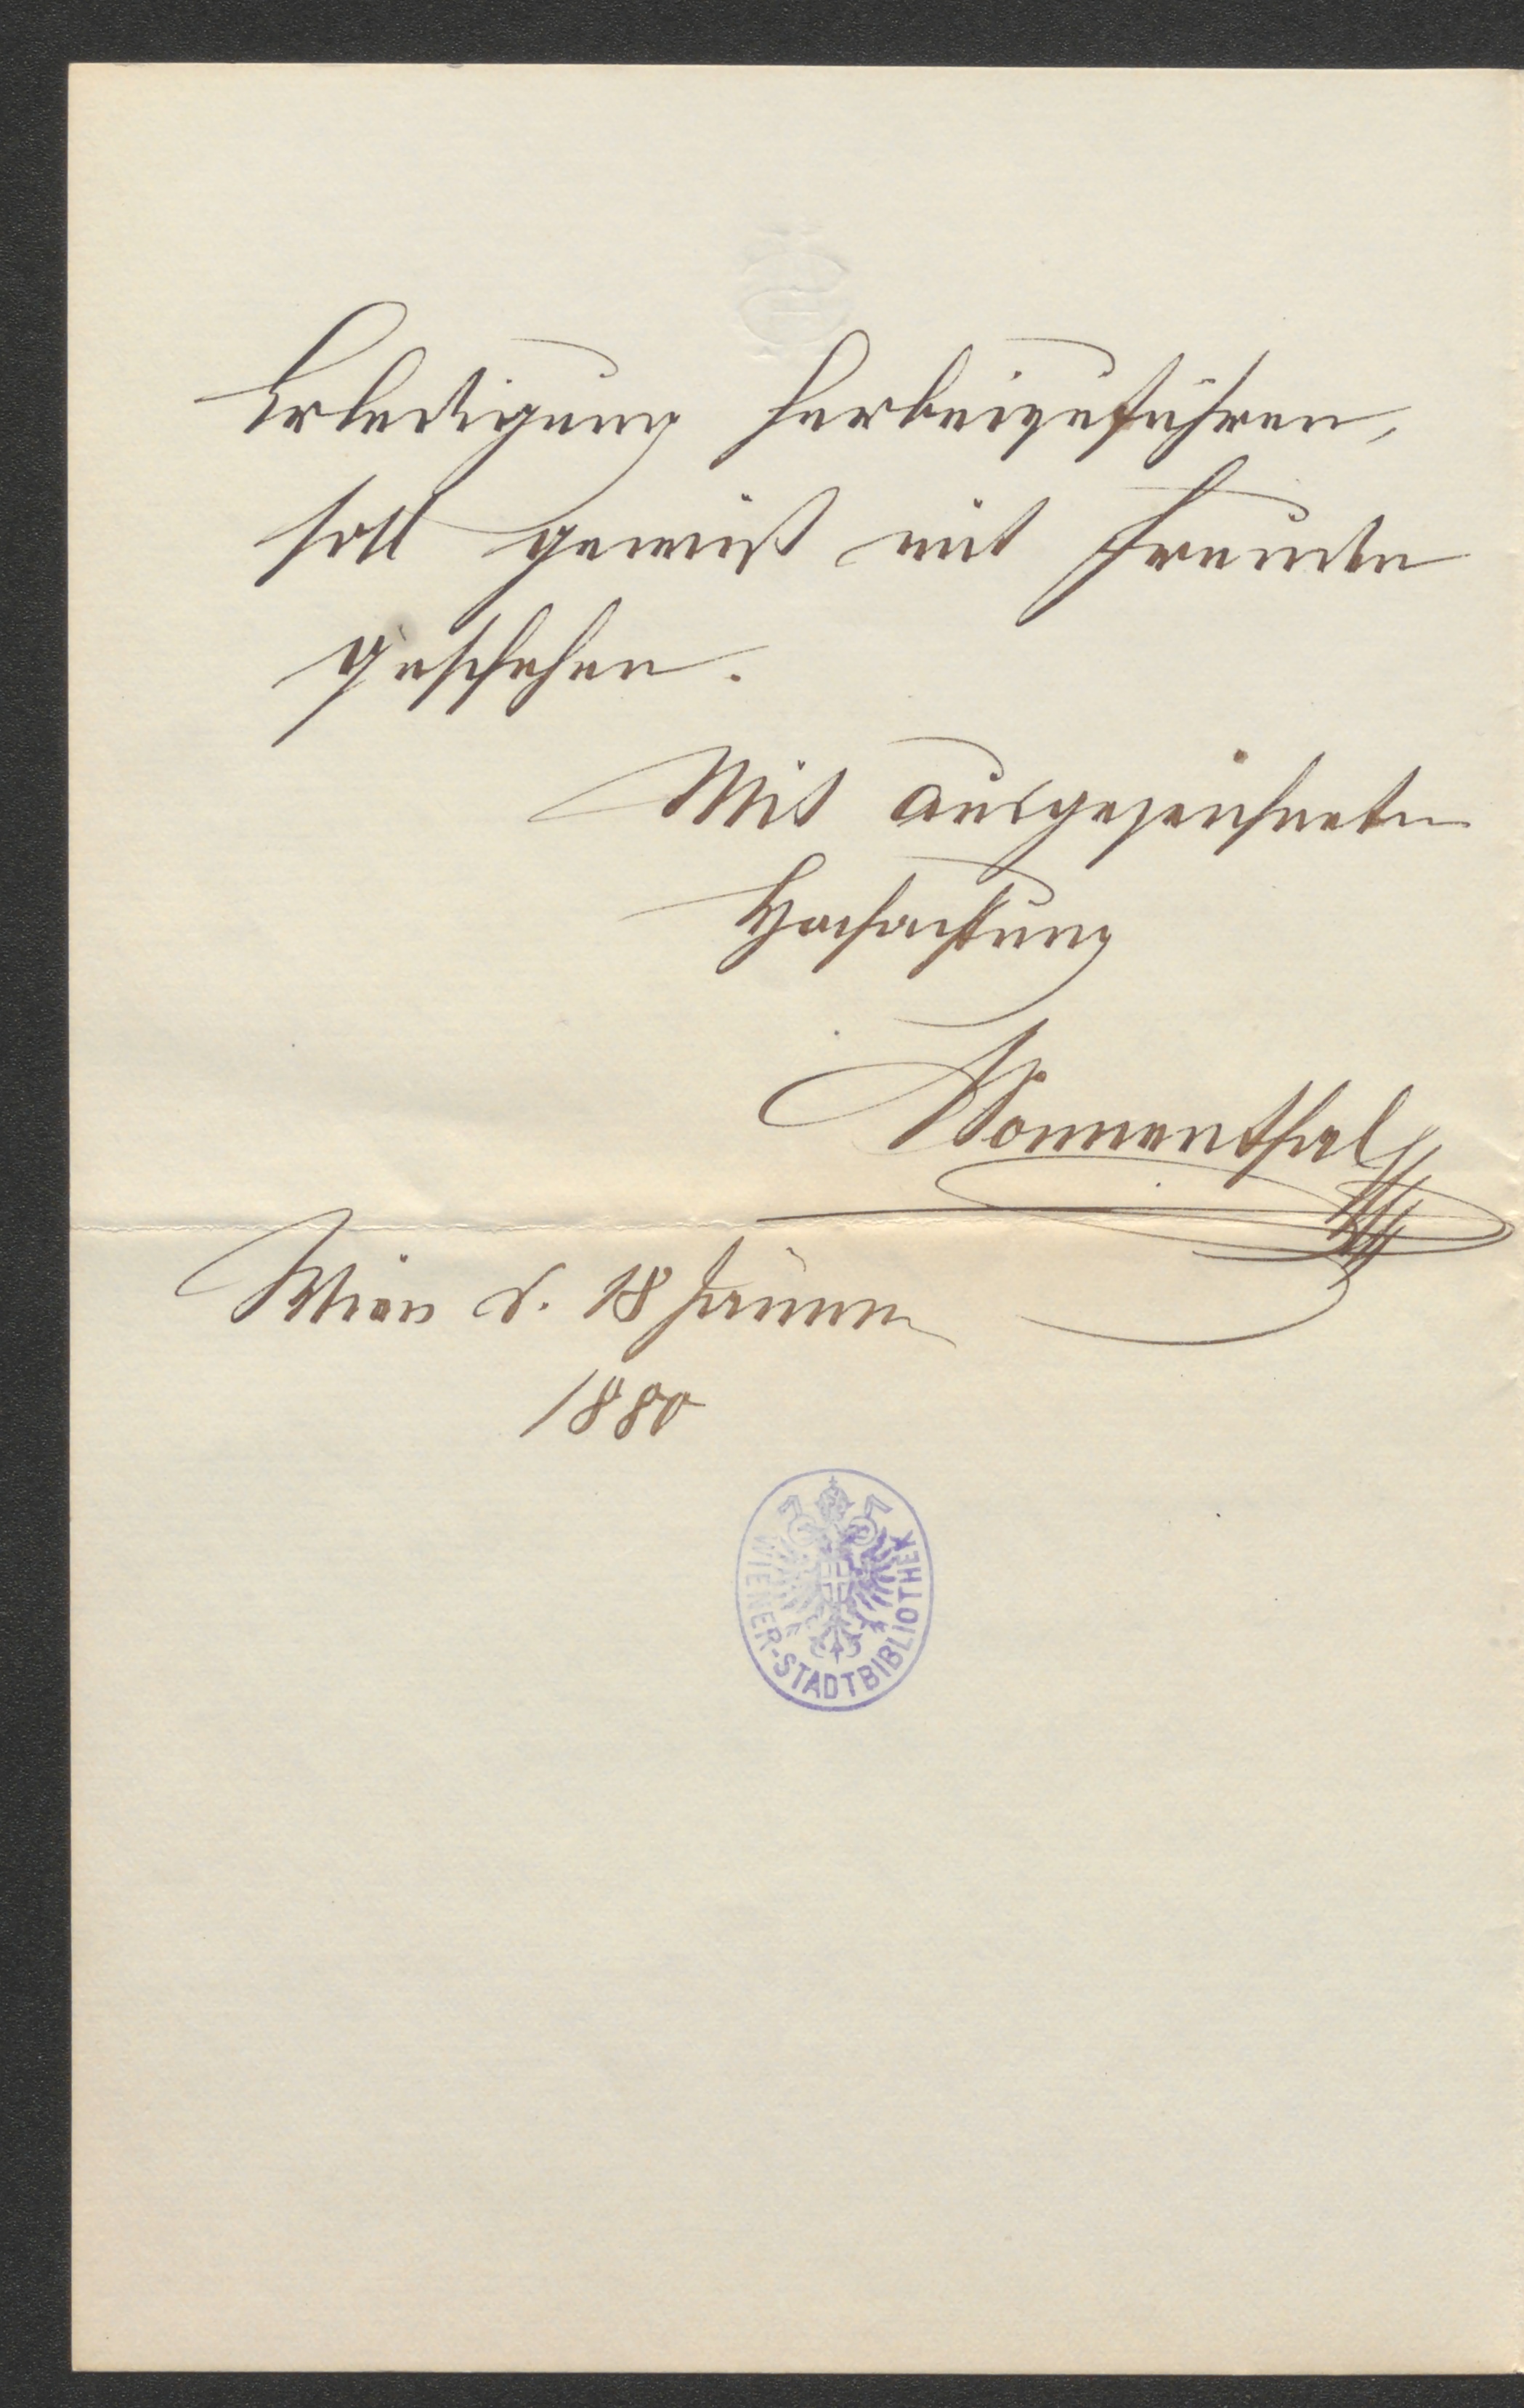 Erledigung herbeizuführen,
soll gewiß mit Freuden
geschehen.
Mit ausgezeichneter
Hochachtung
Sonnenthal
Wien d. 18 Januar
1880
WIENER-STADTBIBLIOTHEK